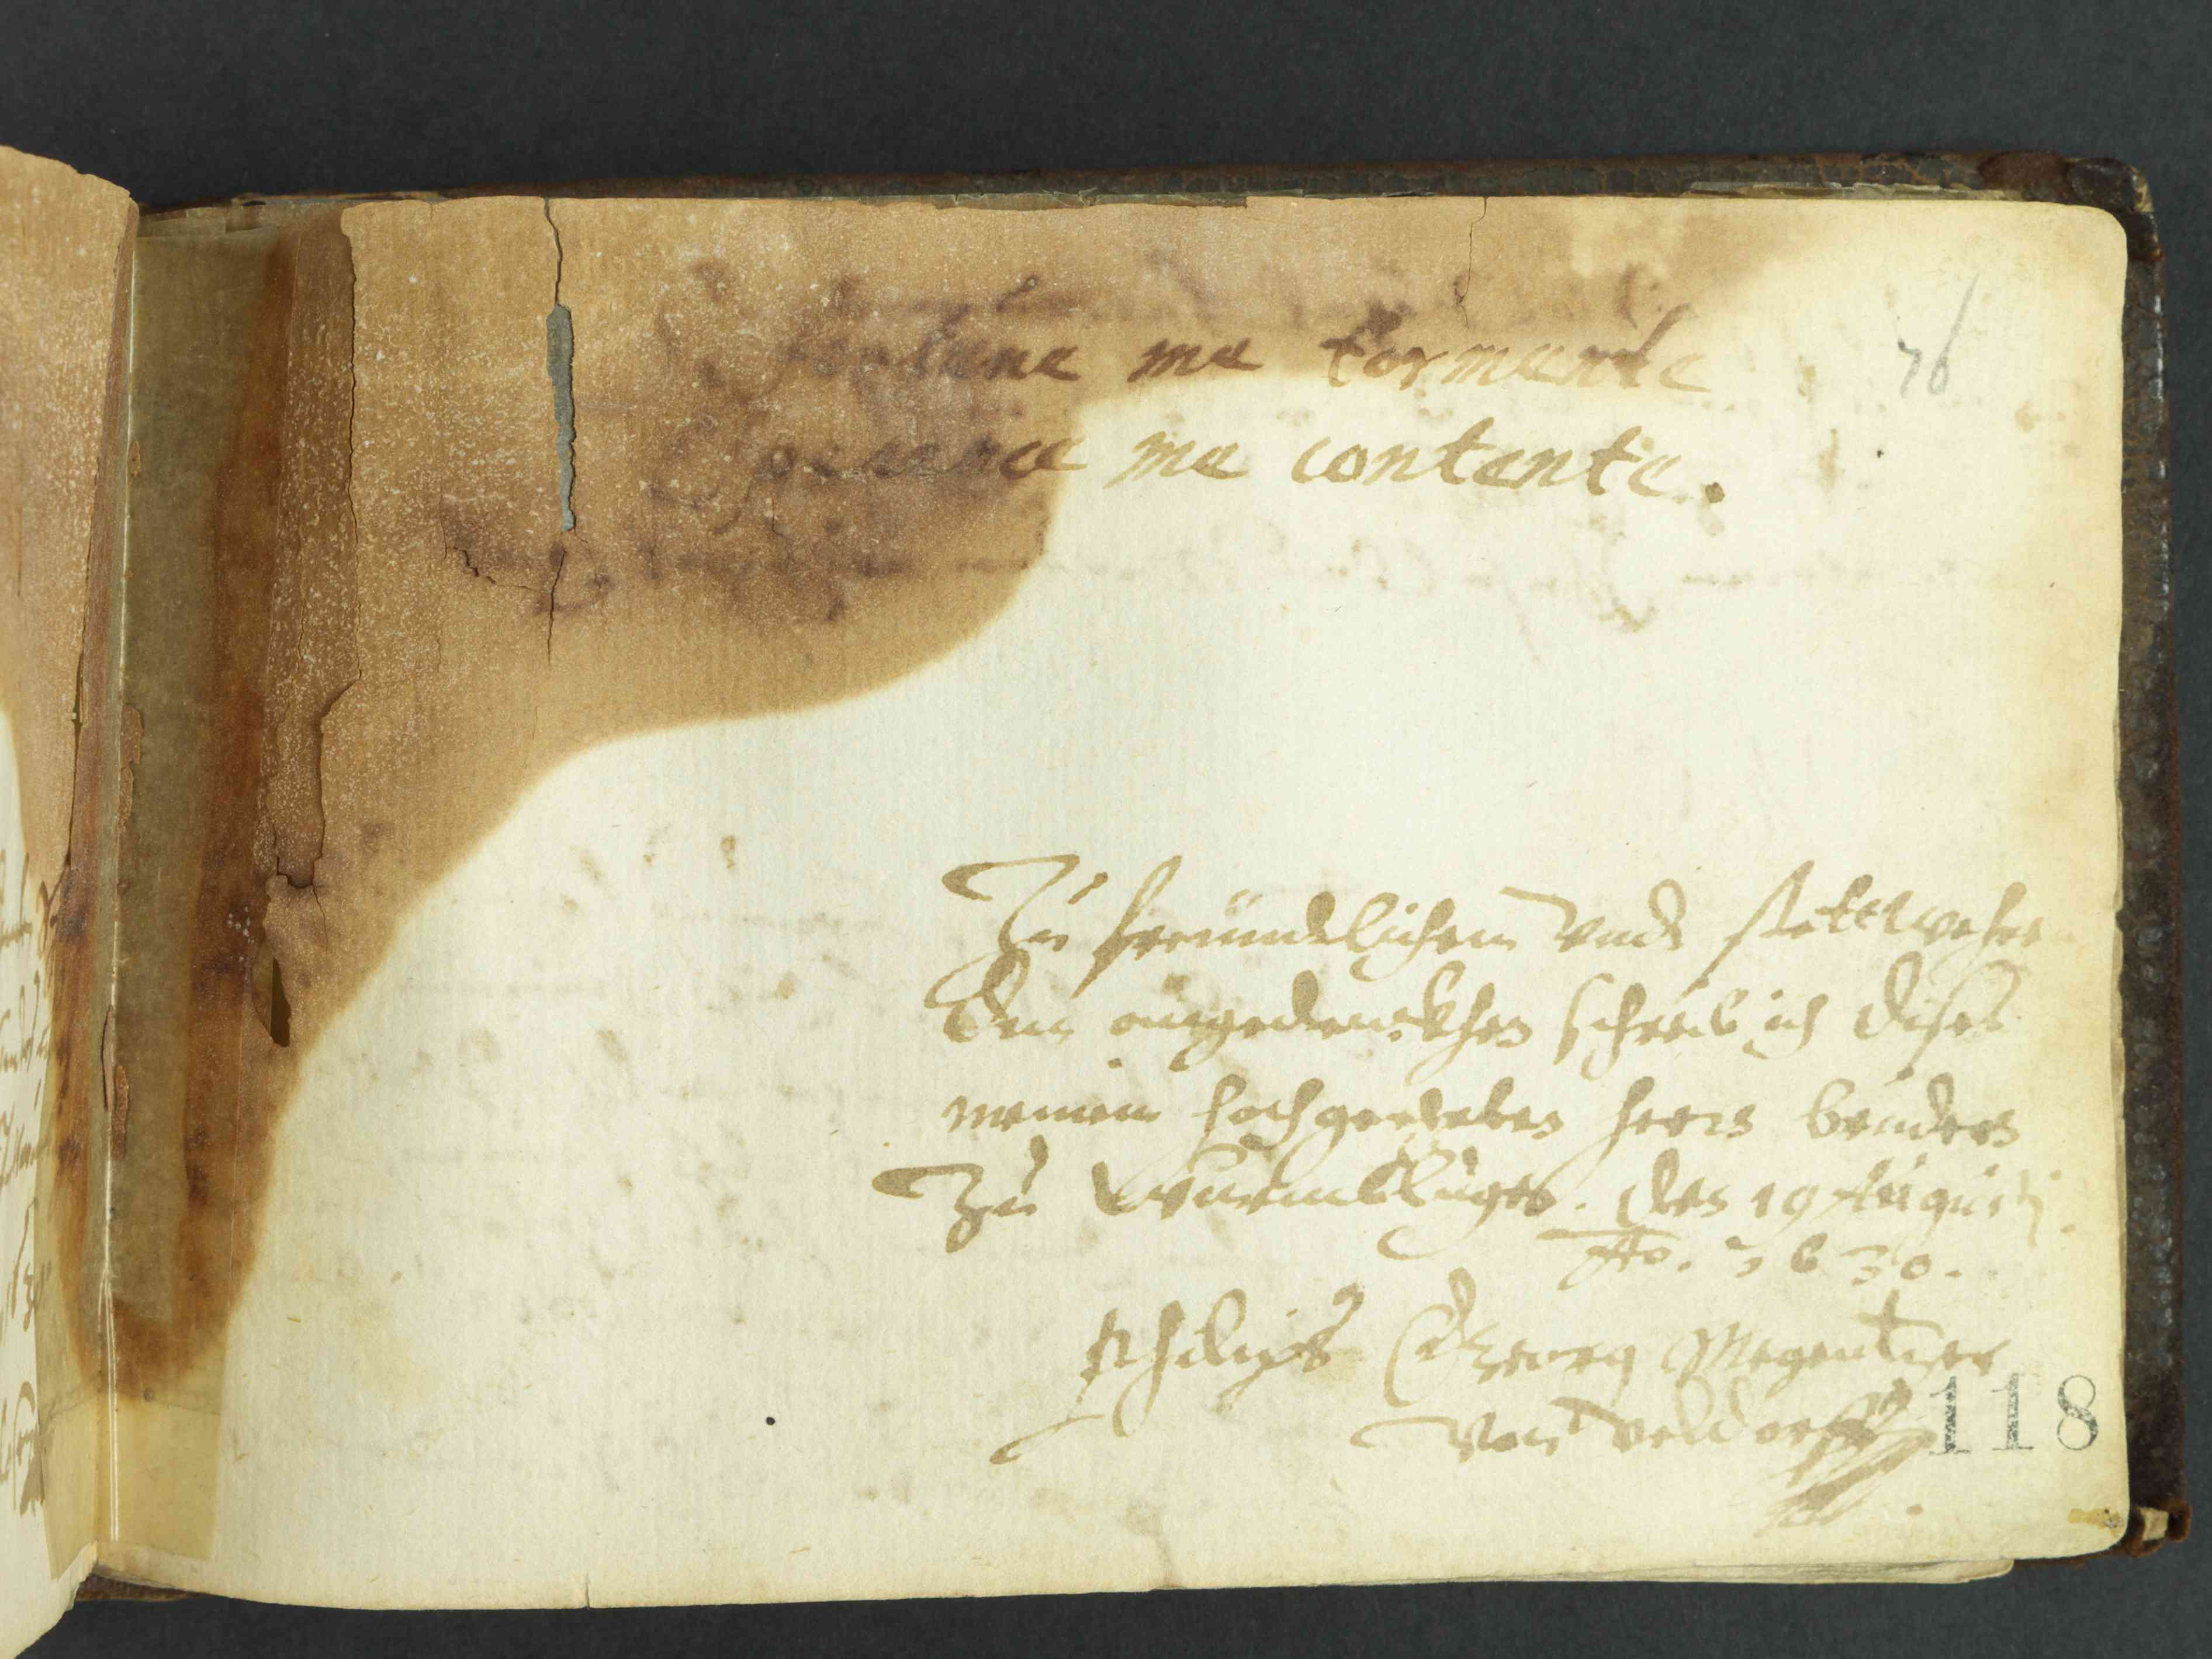 76
fortune me tormente
Esperence me contente.
Zu freündlichem Vnd stettwehren
den angedenckhen schreib ich dises
meinem hochgeehrten herrn bruedern
Zu den 19 Augusti
Ao. 1630.
Philips Georg Megentzer
Von veldorff
118